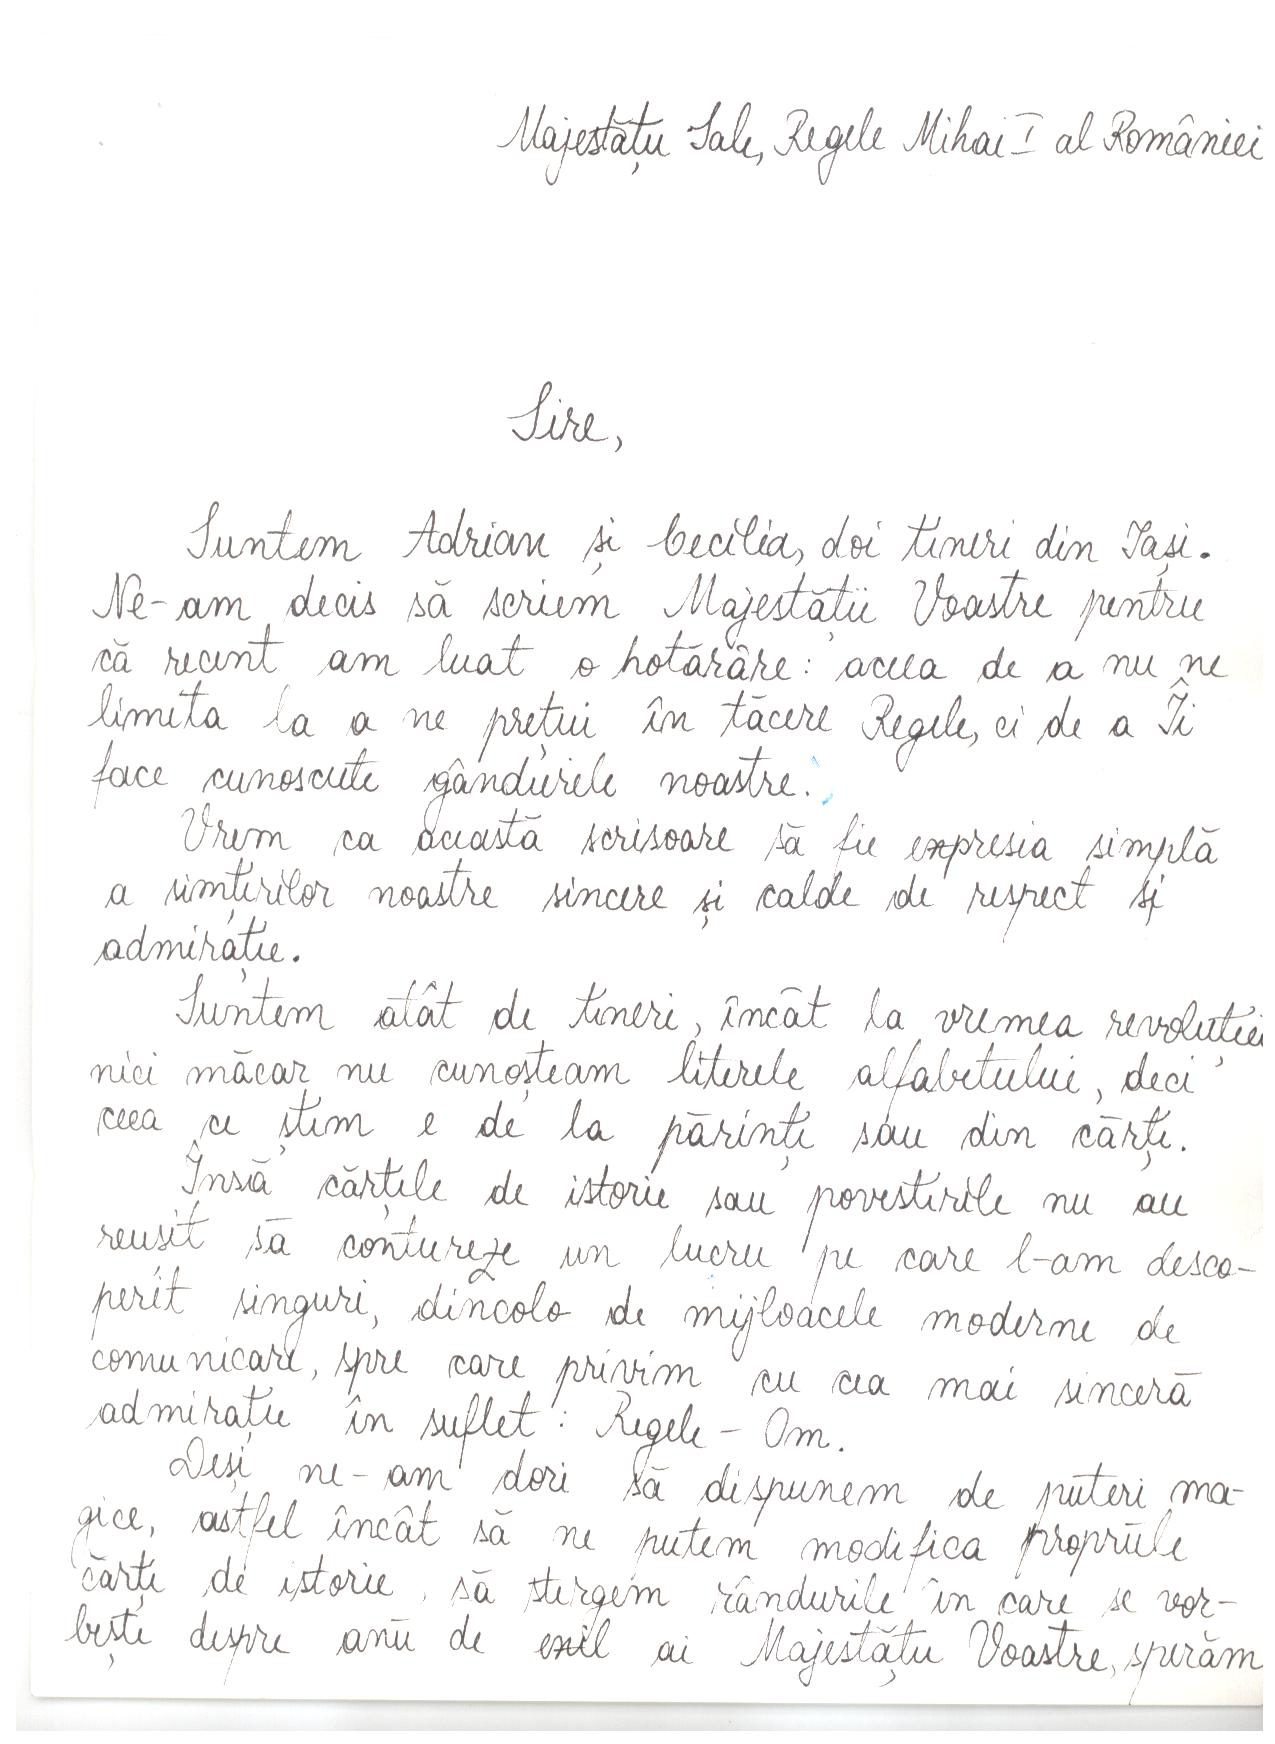 Majestății Sale, Regele Mihai I al României
Sire,
Suntem Adrian și Cecilia, doi tineri din Iași.
Ne-am decis să scriem Majestății Voastre pentru
că recent am luat o hotărâre: aceea de a nu ne
limita la a ne prețui în tăcere Regele, ci de a Îi
face cunoscute gândurile noastre.
Vrem ca această scrisoare să fie expresia simplă
a simțirilor noastre sincere și calde de respect și
admirație.
Suntem atât de tineri, încât la vremea revoluției
nici măcar nu cunoșteam literele alfabetului, deci
ceea ce știm e de la părinți sau din cărți.
Însă cărțile de istorie sau povestirile nu au
reușit să contureze un lucru pe care l-am desco-
perit singuri, dincolo de mijloacele moderne de
comunicare, spre care privim cu cea mai sinceră
admirație în suflet: Regele - Om.
Deși ne-am dori să dispunem de puteri ma-
gice, astfel încât să ne putem modifica propriile
cărți de istorie, să ștergem rândurile în care se vor-
bește despre anii de exil ai Majestății Voastre, sperăm